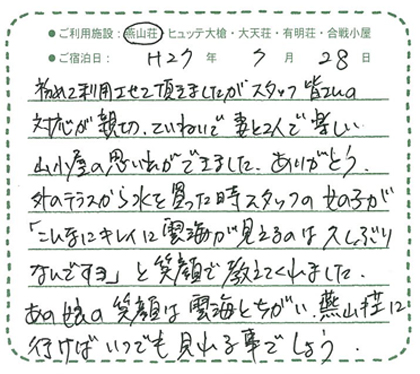 ●ご利用施設：燕山荘・ヒュッテ大槍・大天荘・有明荘・合戦小屋
●ご宿泊日： H27 年 7 月 28 日
初めて利用させて頂きましたがスタッフ皆さんの
対応が親切、ていねいで妻と2人で楽しい
山小屋の思い出ができました。ありがとう。
外のテラスから水を買った時スタッフの女の子が
「こんなにキレイに雲海が見えるのは久しぶり
なんですヨ」と笑顔で教えてくれました。
あの娘の笑顔は雲海とちがい、燕山荘に
行けばいつでも見れる事でしょう.